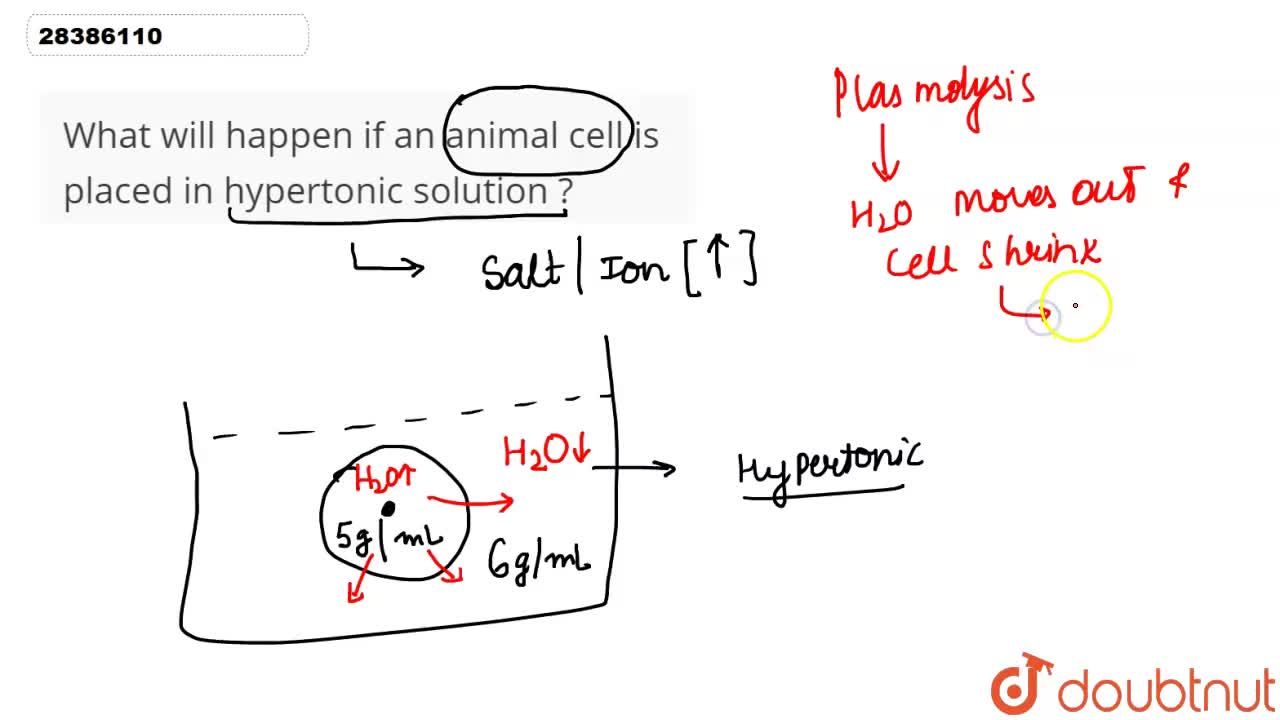 28386110
What will happen if an animal cell is
placed in hypertonic solution ?
Salt | Ion [↑]
Plasmolysis
H2O moves out &
cell shrink
H2O↑
5g | mL
H2O↓
6g/mL
Hypertonic
doubtnut